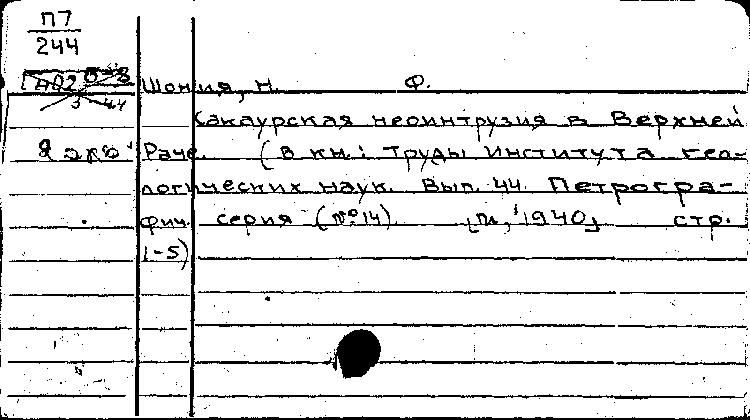 П7
244
Шония, Н. Ф.
3-44
Какаурская неоинтрузия в Верхней
2 экз. Раче. (В кн.: Труды института гео-
логических наук. Вып. 44. Петрогра-
фич. серия (№ 14). [М, 1940] стр.
1-5)